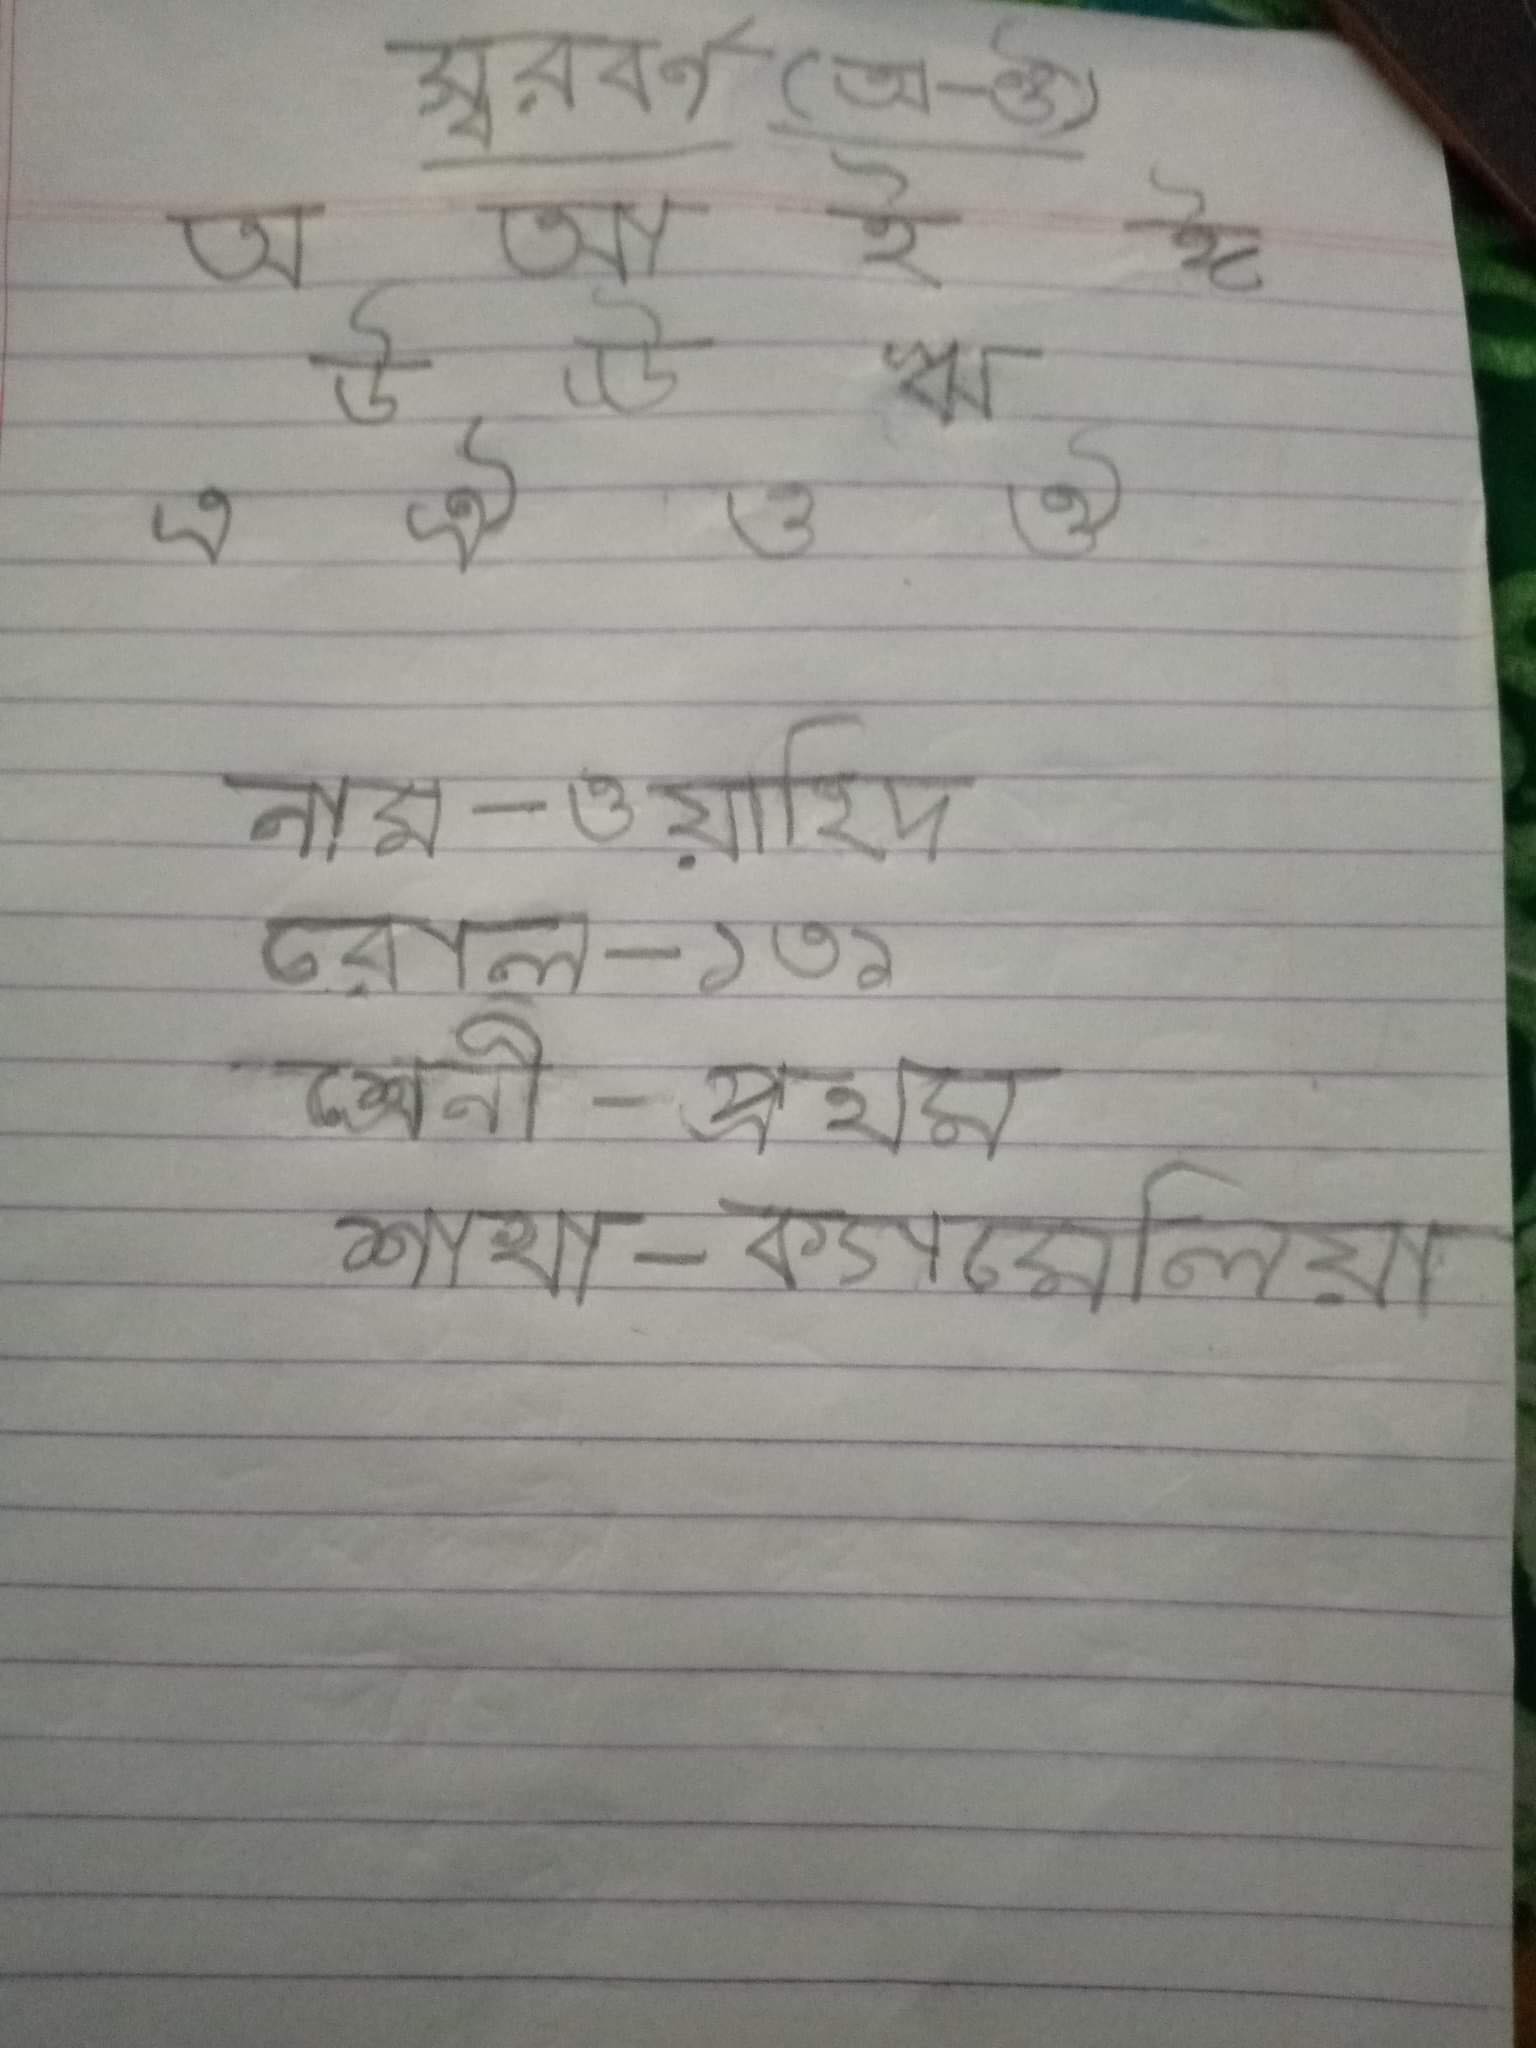 স্বরবর্ণ (অ-ঔ)
অ আ ই ঈ
উ ঊ ঋ
এ ঐ ও ঔ
নাম - ওয়াহিদ
রোল - ১৩১
শ্রেনী - প্রথম
শাখা - ক্যামেলিয়া